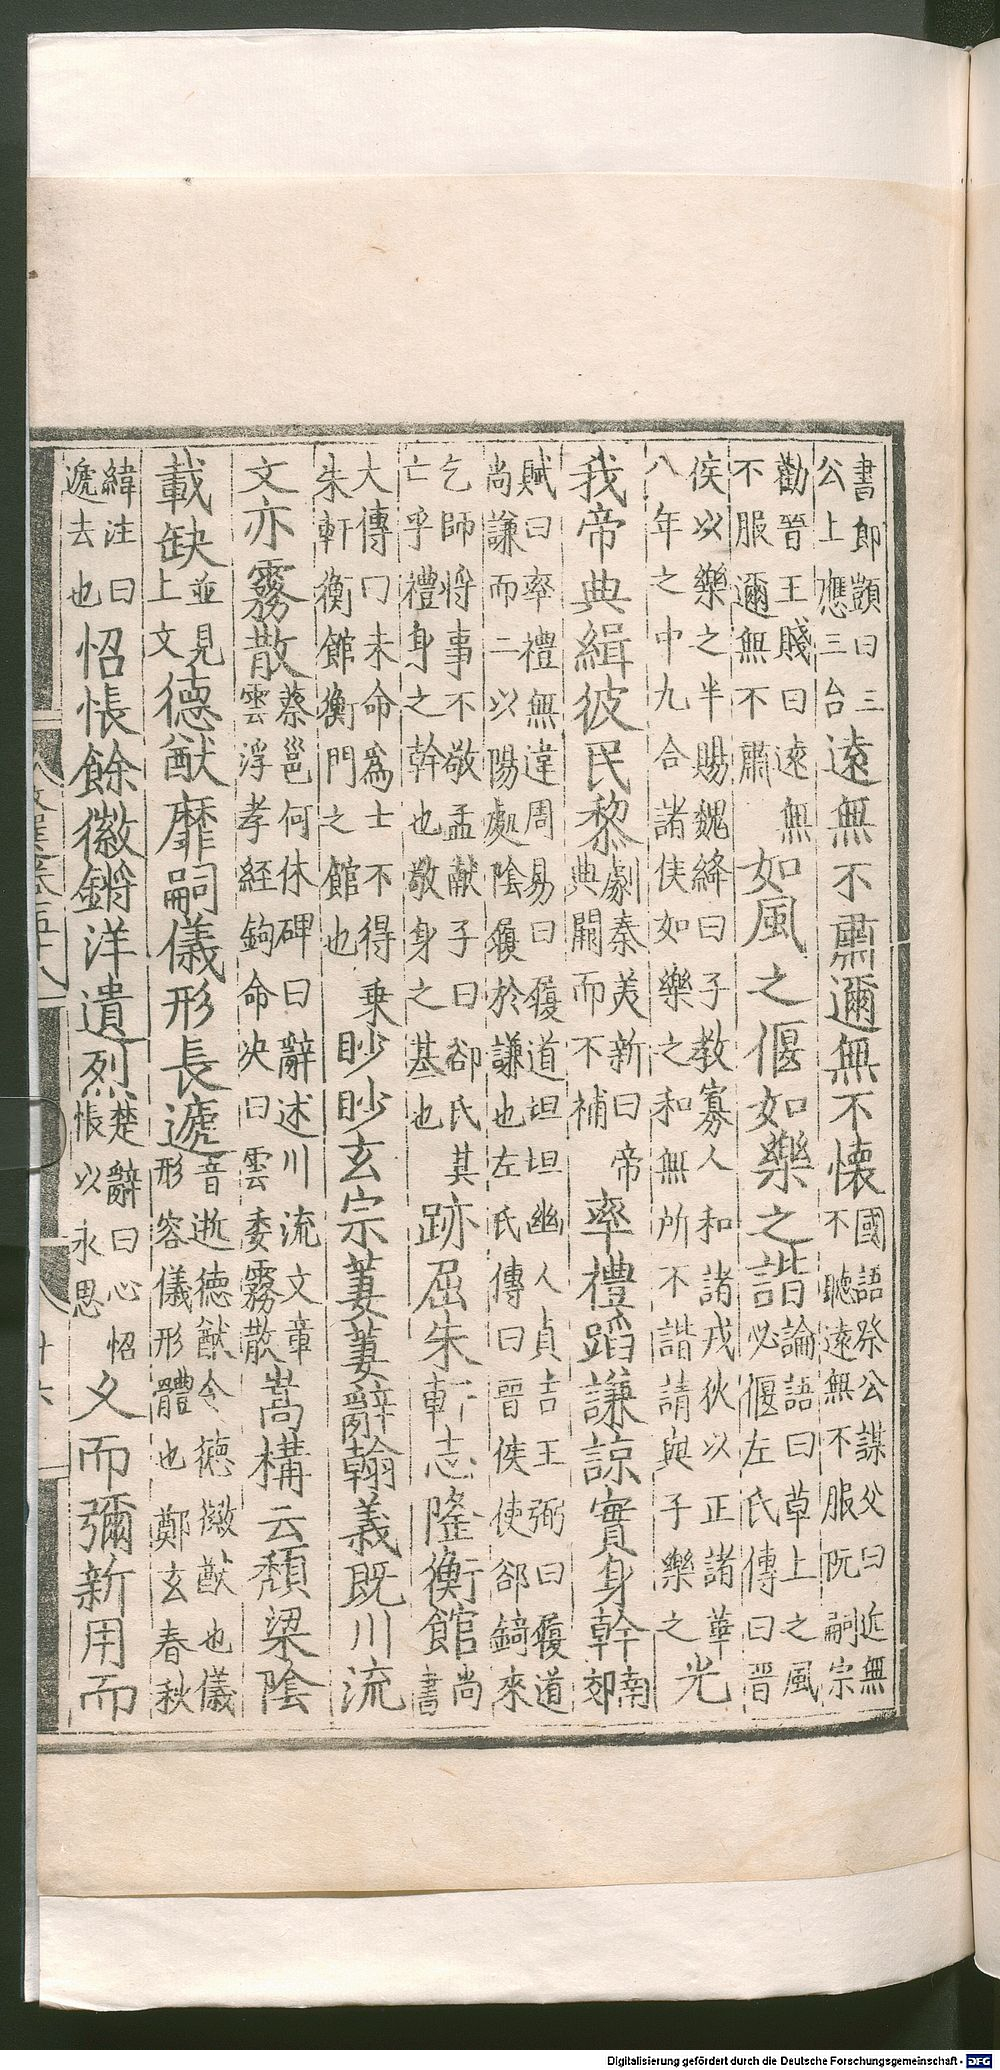 書郎顗曰三公上應三台遠無不肅邇無不懷國語祭公謀父曰近無不聽遠無不服阮嗣宗
勸晉王牋曰遠無不服邇無不肅如風之偃如樂之諧論語曰草上之風必偃左氏傳曰晉
侯以樂之半賜魏絳曰子教寡人和諸戎狄以正諸華八年之中九合諸侯如樂之和無所不諧請與子樂之光
我帝典緝彼民黎劇秦美新曰帝典闕而不補率禮蹈謙諒實身幹南郊
賦曰率禮無違周易曰履道坦坦幽人貞吉王弼曰履道尚謙而二以陽處陰履於謙也左氏傳曰晉侯使郤錡來
乞師將事不敬孟献子曰郤氏其亡乎禮身之幹也敬身之基也跡屈朱軒志隆衡館尚書
大傳曰未命爲士不得乗朱軒衡館衡門之館也眇眇玄宗萋萋辭翰義既川流
文亦霧散蔡邕何休碑曰辭述川流文章雲浮孝経鉤命决曰雲委霧散嵩構云頹梁陰
載缺並見上文德猷靡嗣儀形長遞音逝德猷令德徽猷也儀形容儀形體也鄭玄春秋
緯注曰遞去也怊悵餘徽鏘洋遺烈楚辭曰心怊悵以永思乆而彌新用而
文選卷五十八
廿六
Digitalisierung gefördert durch die Deutsche Forschungsgemeinschaft - DFG